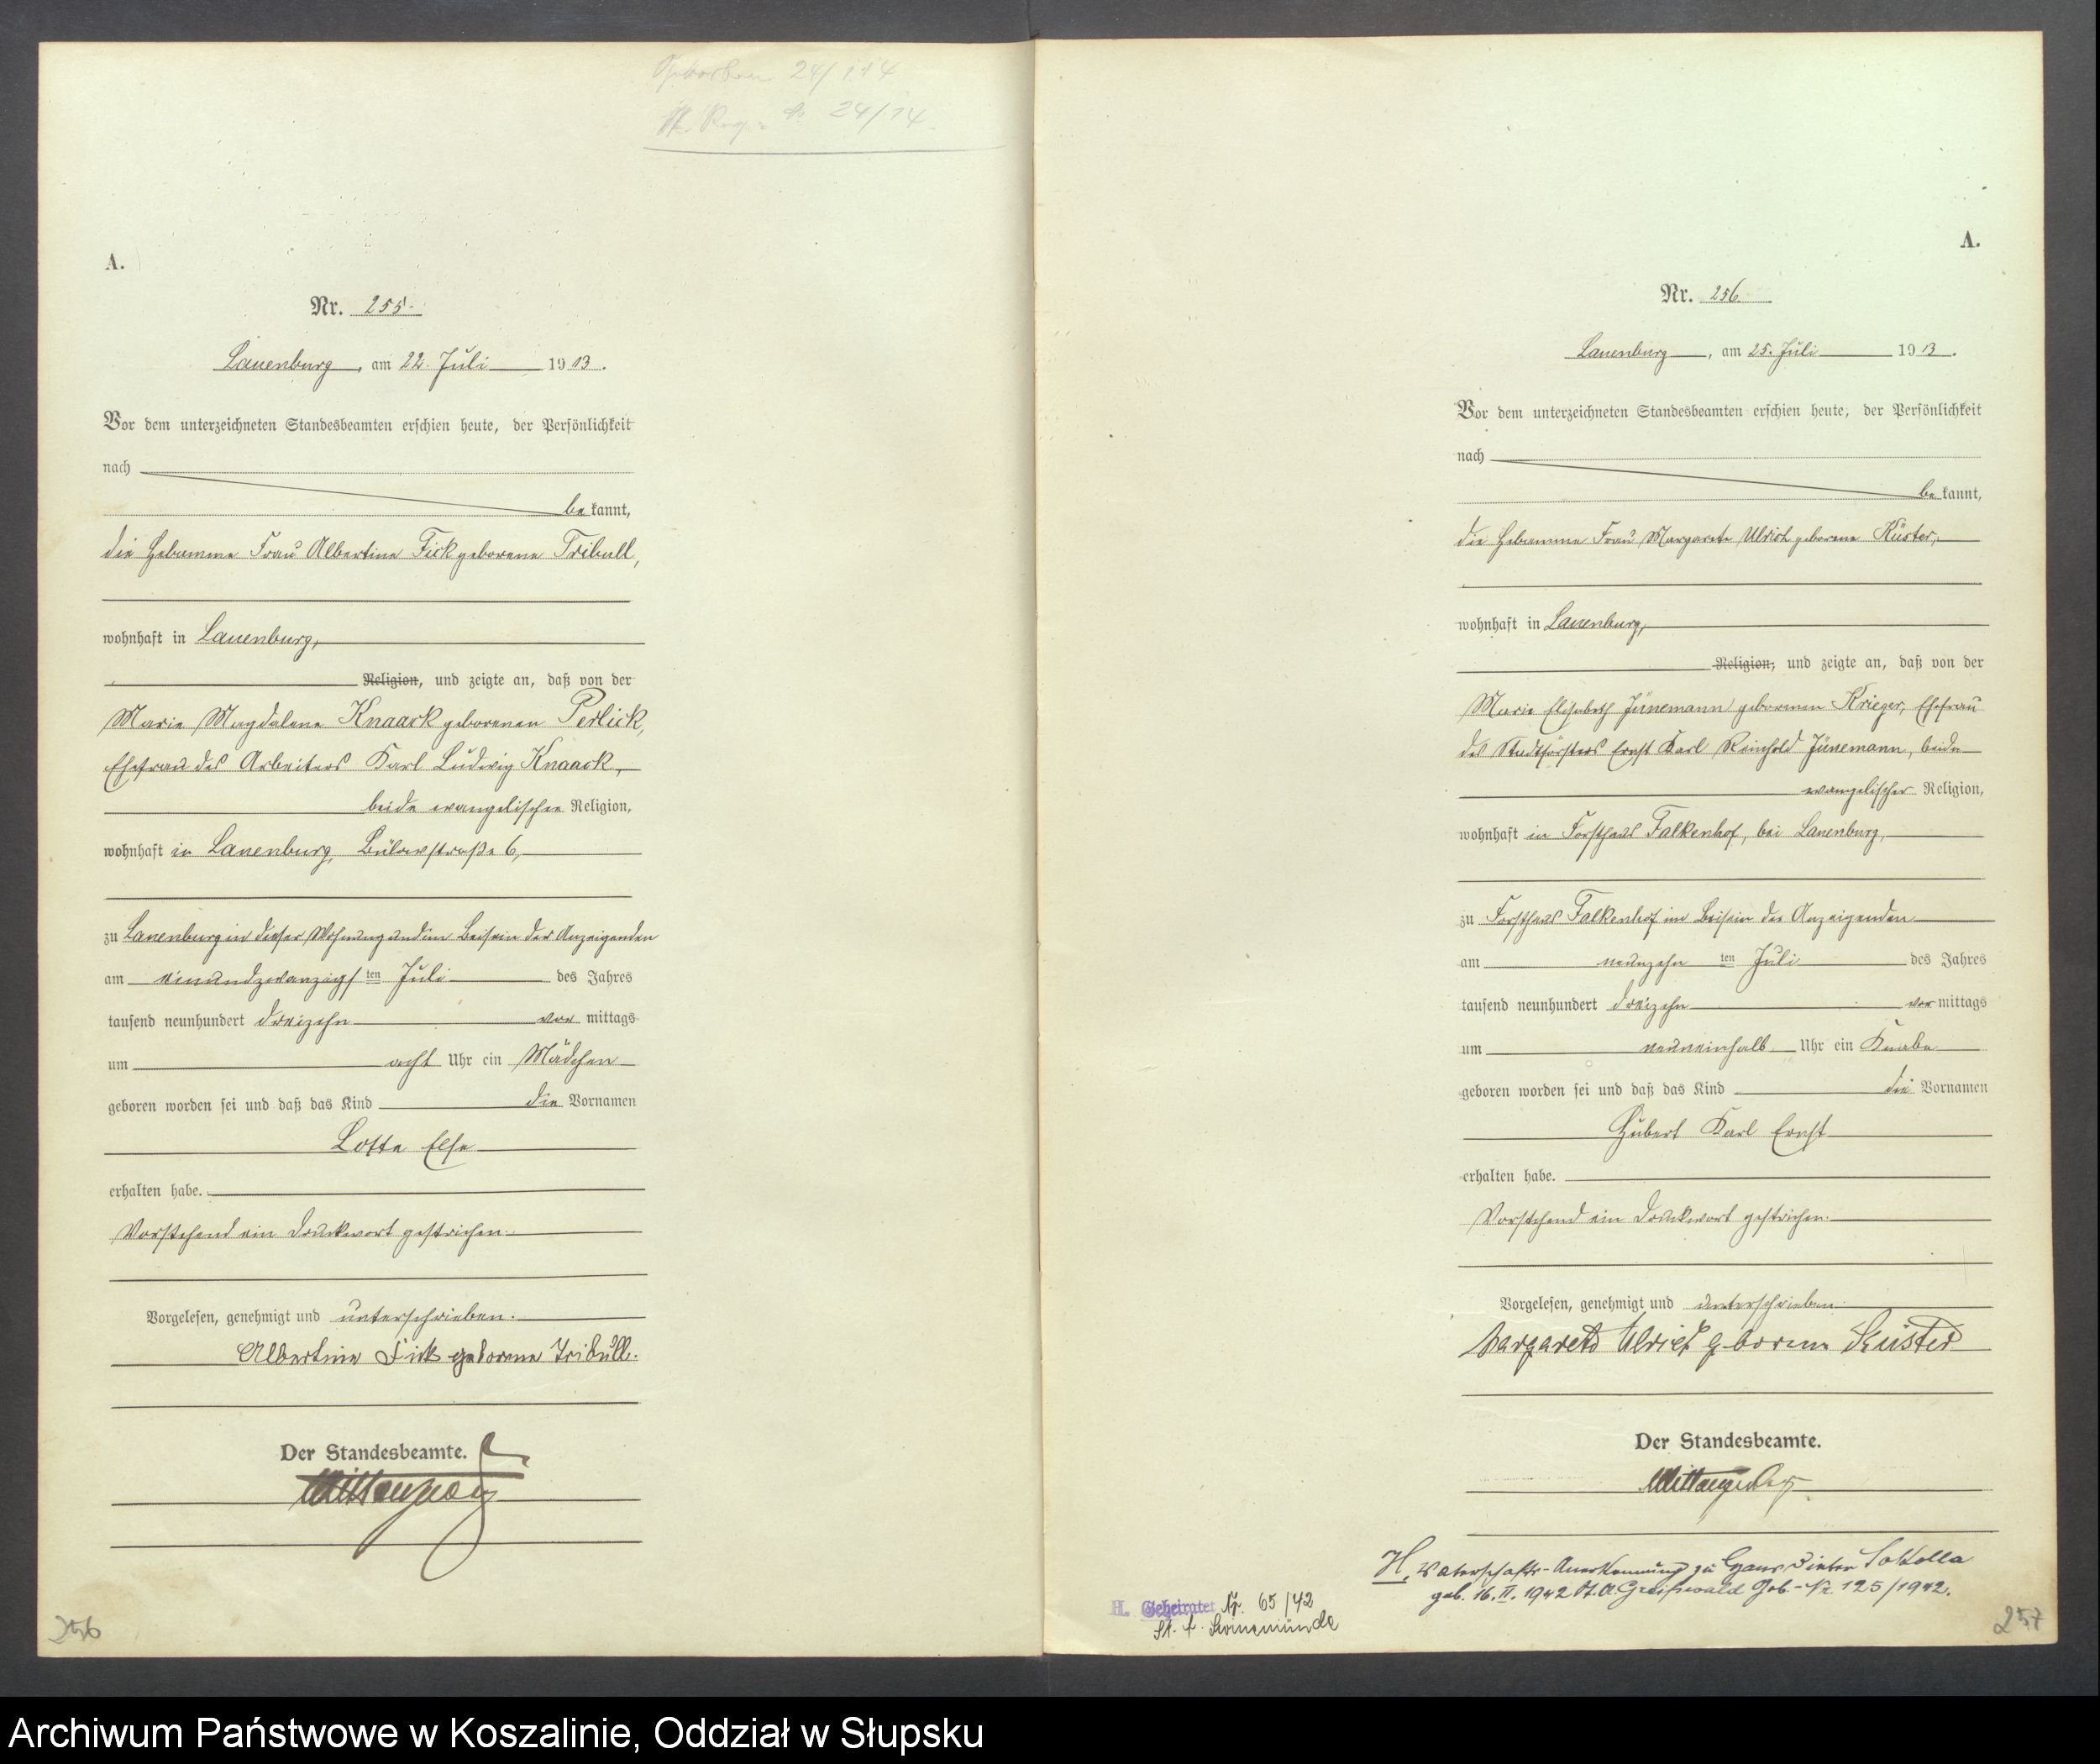 Gestorben 24/1 14
St. Reg. No 24/14.
A.
Nr. 255.
Lauenburg, am 22. Juli 1913.
Vor dem unterzeichneten Standesbeamten erschien heute, der Persönlichkeit
nach
bekannt,
die Hebamme Frau Albertine Fick geborene Tribull,
wohnhaft in Lauenburg,
Religion, und zeigte an, daß von der
Marie Magdalene Knaack geborenen Perlick,
Ehefrau des Arbeiters Karl Ludwig Knaack,
beide evangelischer Religion,
wohnhaft in Lauenburg, Bülowstraße 6,
zu Lauenburg in dieser Wohnung und im Beisein der Anzeigenden
am einundzwanzigsten Juli des Jahres
tausend neunhundert dreizehn vormittags
um acht Uhr ein Mädchen
geboren worden sei und daß das Kind die Vornamen
Lotte Else
erhalten habe.
Vorstehend ein Druckwort gestrichen.
Vorgelesen, genehmigt und unterschrieben.
Albertine Fick geborene Tribull.
Der Standesbeamte.
256
A.
Nr. 256.
Lauenburg, am 25. Juli 1913.
Vor dem unterzeichneten Standesbeamten erschien heute, der Persönlichkeit
nach
bekannt,
die Hebamme Frau Margarete Ulrich geborene Küster,
wohnhaft in Lauenburg,
Religion, und zeigte an, daß von der
Marie Elisabeth Jünemann geborenen Krieger, Ehefrau
des Stadtförsters Ernst Karl Reinhold Jünemann, beide
evangelischer Religion,
wohnhaft in Forsthaus Falkenhof, bei Lauenburg,
zu Forsthaus Falkenhof im Beisein der Anzeigenden
am neunzehnten Juli des Jahres
tausend neunhundert dreizehn vormittags
um neuneinhalb Uhr ein Knabe
geboren worden sei und daß das Kind die Vornamen
Hubert Karl Ernst
erhalten habe.
Vorstehend ein Druckwort gestrichen.
Vorgelesen, genehmigt und unterschrieben
Margarete Ulrich geborene Küster
Der Standesbeamte.
H. Vaterschafts-Anerkennung zu Hans Dieter Sokolla
geb. 16. II. 1942 St. A. Greifswald Geb.-Nr. 125/1942.
H. Geheiratet Nr. 65/42
St. A. Swinemünde
257
Archiwum Państwowe w Koszalinie, Oddział w Słupsku